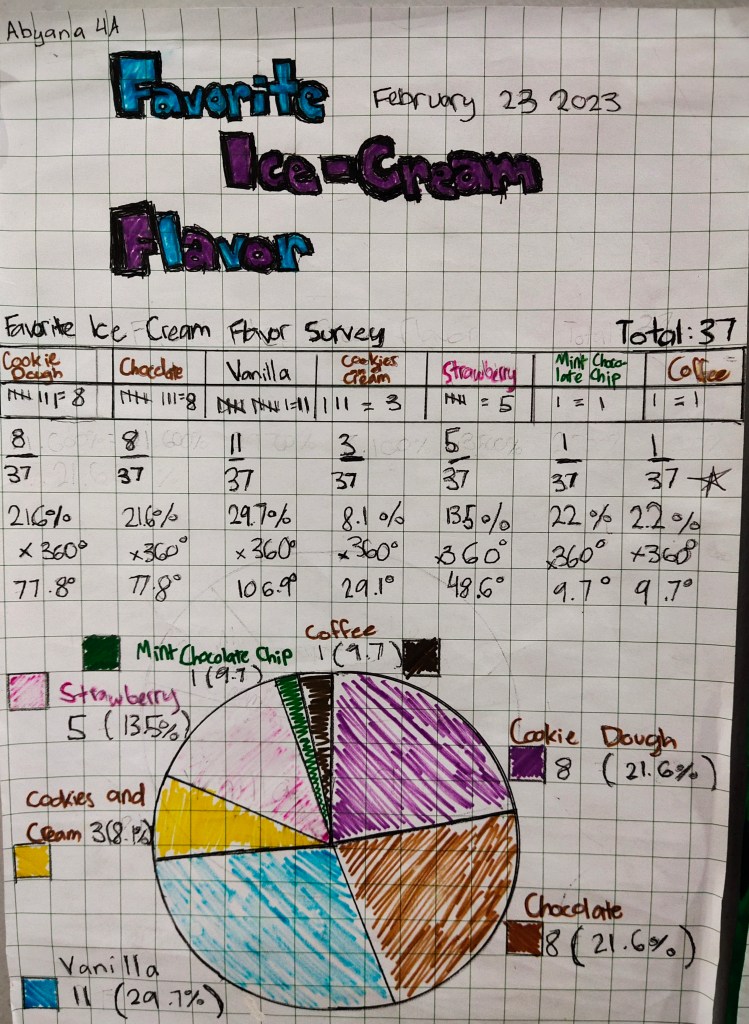 Abyana 4A
Favorite February 23 2023
Ice-Cream
Flavor
Favorite Ice-Cream Flavor Survey Total: 37
Cookie Dough Chocolate Vanilla Cookies and Cream Strawberry Mint Chocolate Chip Coffee
= 8 = 8 = 11 = 3 = 5 1 = 1 1 = 1
8/37 8/37 11/37 3/37 5/37 1/37 1/37
21.6% 21.6% 29.7% 8.1% 13.5% 2.2% 2.2%
×360° ×360° ×360° ×360° ×360° ×360° ×360°
77.8° 77.8° 106.9° 29.1° 48.6° 9.7° 9.7°
Coffee
1 (9.7)
Mint Chocolate Chip
1 (9.7)
Strawberry
5 (13.5%)
Cookie Dough
8 (21.6%)
Cookies and
Cream 3 (8.1%)
Chocolate
8 (21.6%)
Vanilla
11 (29.7%)